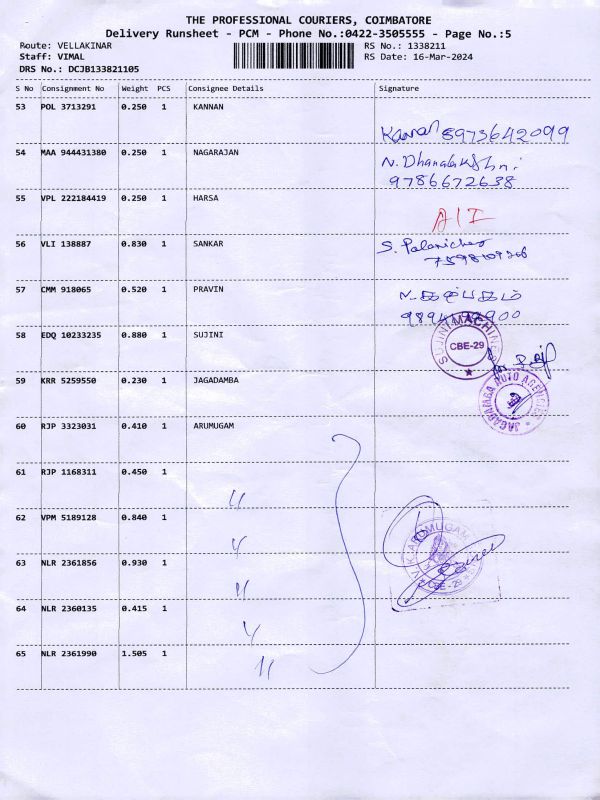 THE PROFESSIONAL COURIERS, COIMBATORE
Delivery Runsheet - PCM - Phone No.:0422-3505555 - Page No.:5
Route: VELLAKINAR RS No.: 1338211
Staff: VIMAL RS Date: 16-Mar-2024
DRS No.: DCJB133821105
S No Consignment No Weight PCS Consignee Details Signature
53 POL 3713291 0.250 1 KANNAN
Kannan 8973642099
54 MAA 944431380 0.250 1 NAGARAJAN N. Dhanalakshmi
9786672638
55 VPL 222184419 0.250 1 HARSA
A/I
56 VLI 138887 0.830 1 SANKAR S.
57 CMM 918065 0.520 1 PRAVIN N.
58 EDQ 10233235 0.880 1 SUJINI SUJINI MACHINES
CBE-29
59 KRR 5259550 0.230 1 JAGADAMBA
JAGADAMBA AUTO AGENCIES
60 RJP 3323031 0.410 1 ARUMUGAM
61 RJP 1168311 0.450 1
62 VPM 5189128 0.840 1
V.K. ARUMUGAM
63 NLR 2361856 0.930 1
CBE-29
64 NLR 2360135 0.415 1
65 NLR 2361990 1.505 1